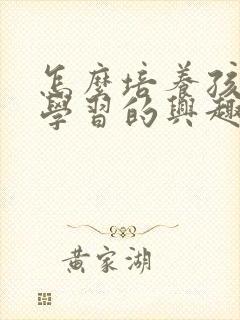 怎麼培養孩
學習的興趣
黃家湖